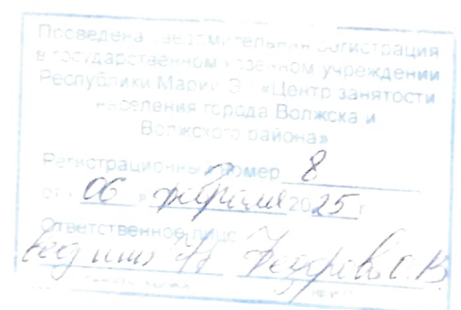 Проведена уведомительная регистрация
в государственном казенном учреждении
Республики Марий Эл «Центр занятости
населения города Волжска и
Волжского района»
Регистрационный номер 8
от «06» февраля 2025 г.
Ответственное лицо
вед инсп Федорова О.В.